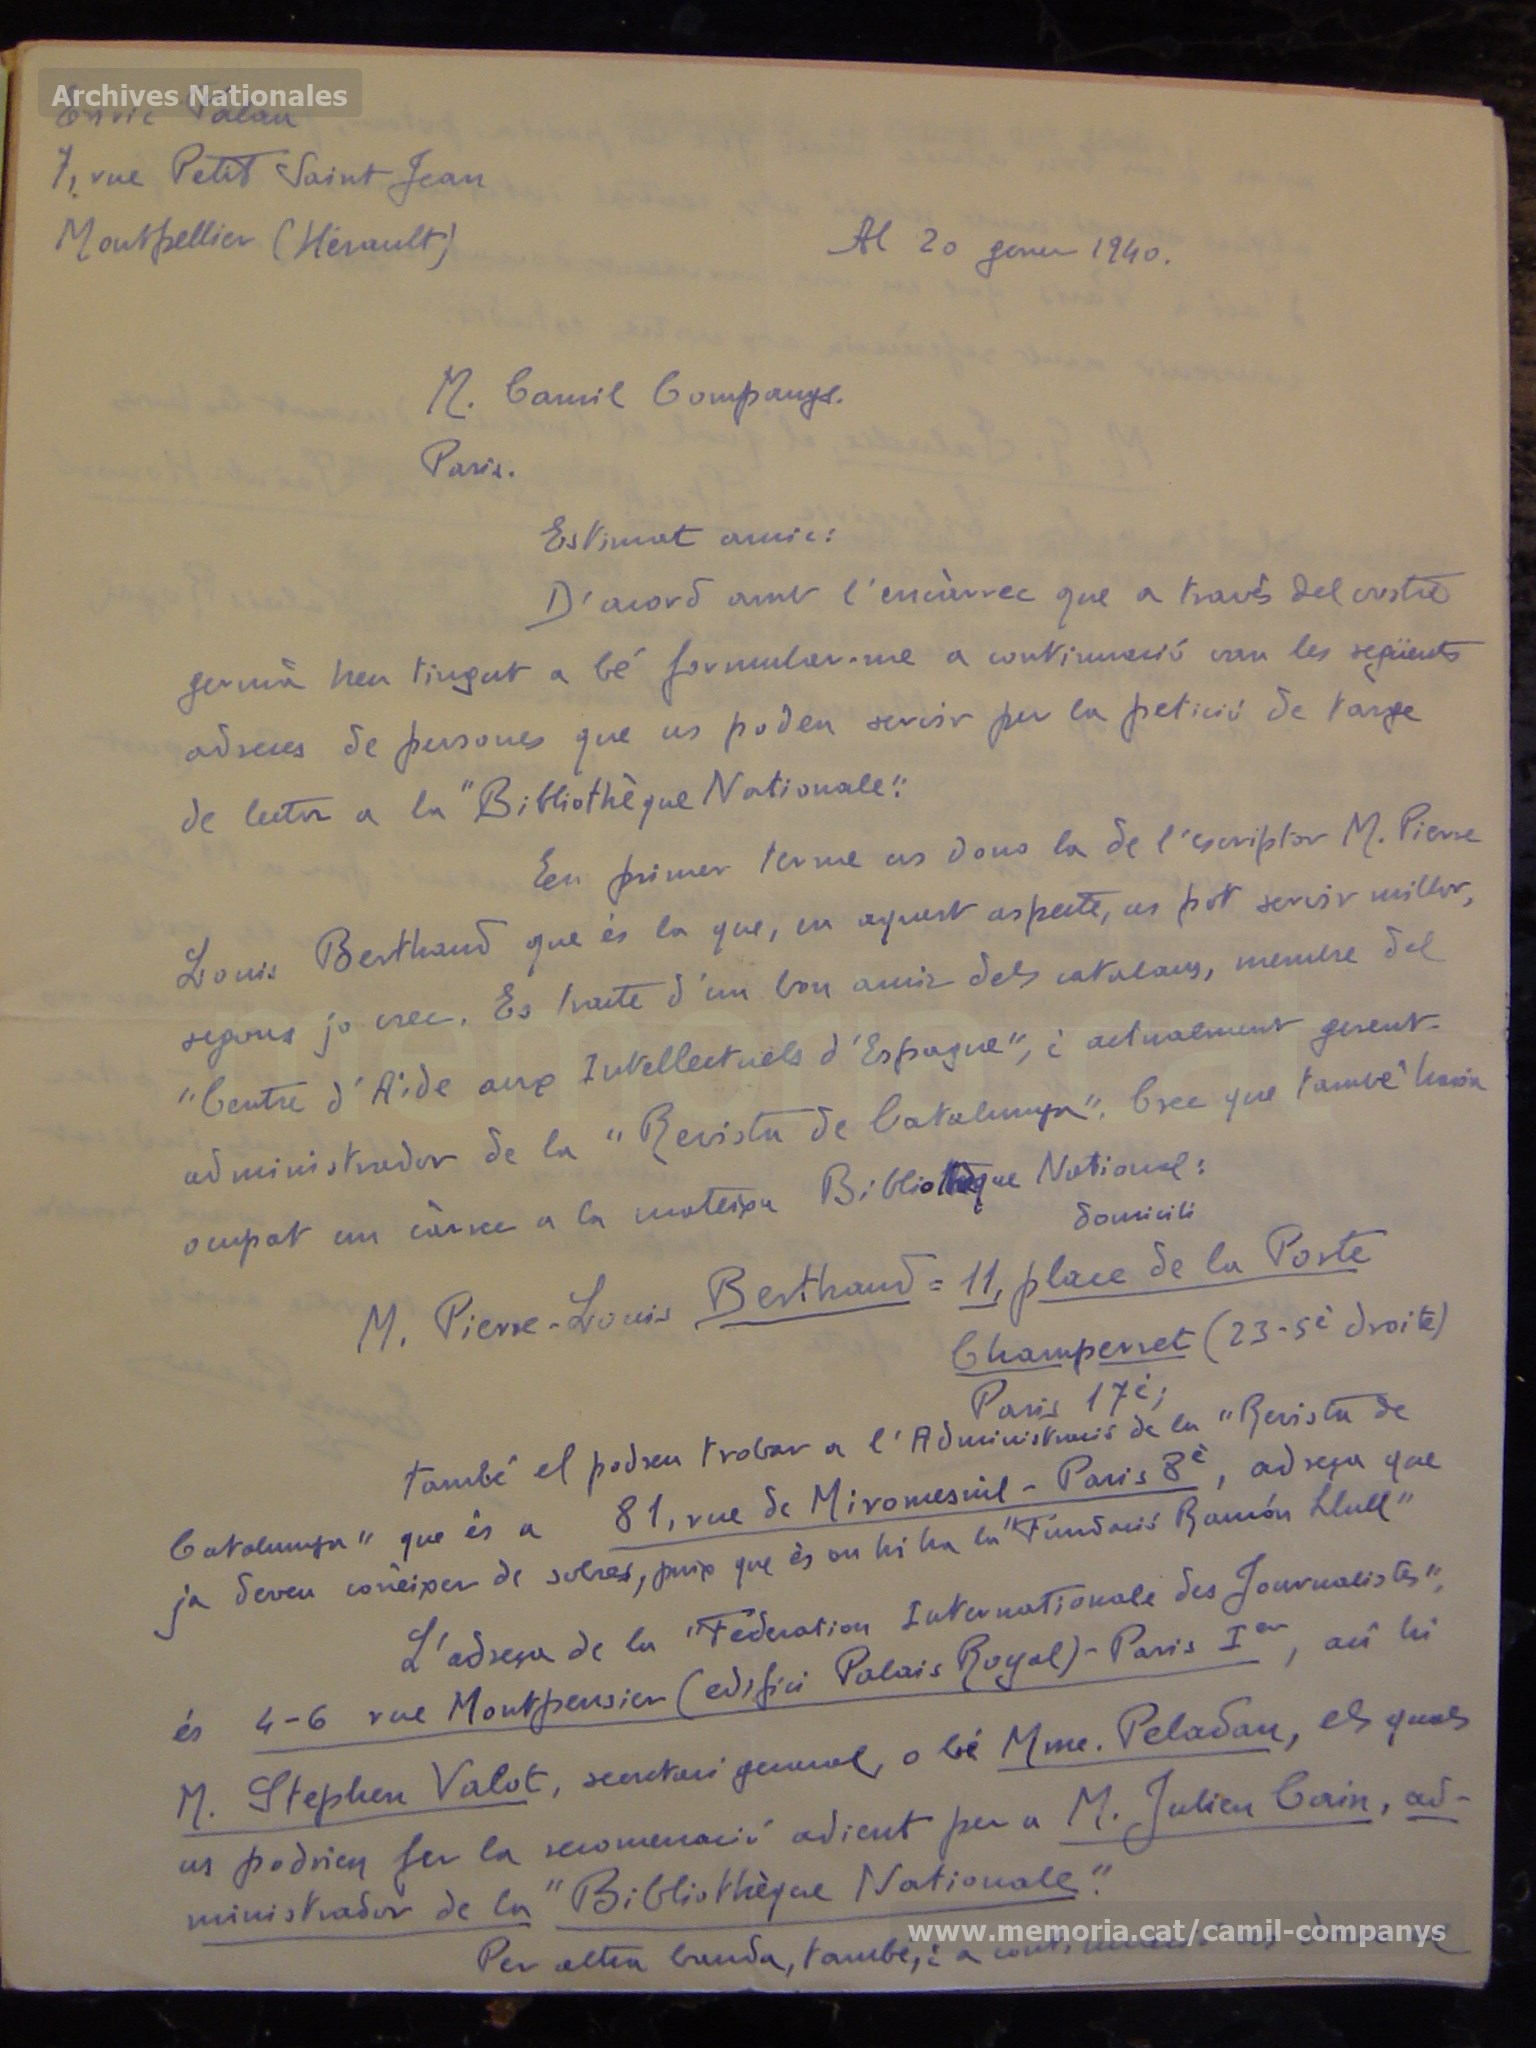 Archives Nationales
Enric Palau
7, rue Petit Saint Jean
Montpellier (Hérault)
Al 20 gener 1940.
M. Camil Companys.
Paris.
Estimat amic:
D'acord amb l'encàrrec que a través del vostre
germà heu tingut a bé formular-me a continuació van les següents
adreces de persones que us poden servir per la petició de targe
de lector a la "Bibliothèque Nationale":
En primer terme us dono la de l'escriptor M. Pierre
Louis Berthaud que és la que, en aquest aspecte, us pot servir millor,
segons jo crec. Es tracta d'un bon amic dels catalans, membre del
"Centre d'Aide aux Intellectuels d'Espagne", i actualment gerent-
administrador de la "Revista de Catalunya". Crec que també havia
ocupat un càrrec a la mateixa Bibliothèque National:
domicili
M. Pierre-Louis Berthaud = 11, place de la Porte
Champerret (23-5è droite)
Paris 17è;
també el podreu trobar a l'Administració de la "Revista de
Catalunya" que és a 81, rue de Miromesnil - Paris 8è, adreça que
ja deveu conèixer de sobres, puix que és on hi ha la "Fundació Ramón Llull"
L'adreça de la "Féderation Internationale des Journalistes",
és 4-6 rue Montpensier (edifici Palais Royal) - Paris Ier, així hi
M. Stephen Valot, secretari general, o bé Mme. Peladan, els quals
us podrien fer la recomenació adient per a M. Julien Cain, ad-
ministrador de la "Bibliothèque Nationale".
Per altra banda, també, i a continuació us
www.memoria.cat/camil-companys